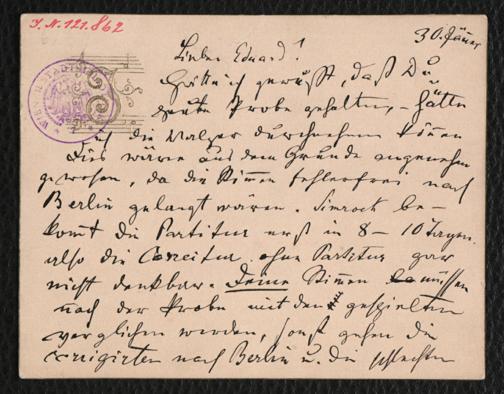 J.N. 121.862
30. Jänner
Lieber Eduard!
Hätte ich gewußt, daß Du
heute Probe gehalten, – hätte
ich die Walzer durchnehmen können
Dies wäre aus dem Grunde angenehm
gewesen, da die Stimmen fehlerfrei nach
Berlin gelangt wären. Simrock be-
komt die Partitur erst in 8 – 10 Tagen.
also die Correctur ohne Partitur gar
nicht denkbar. Deine Stimen müssen
nach der Probe mit den gespielten
verglichen werden, sonst gehen die
corrigirten nach Berlin u. die schlechten